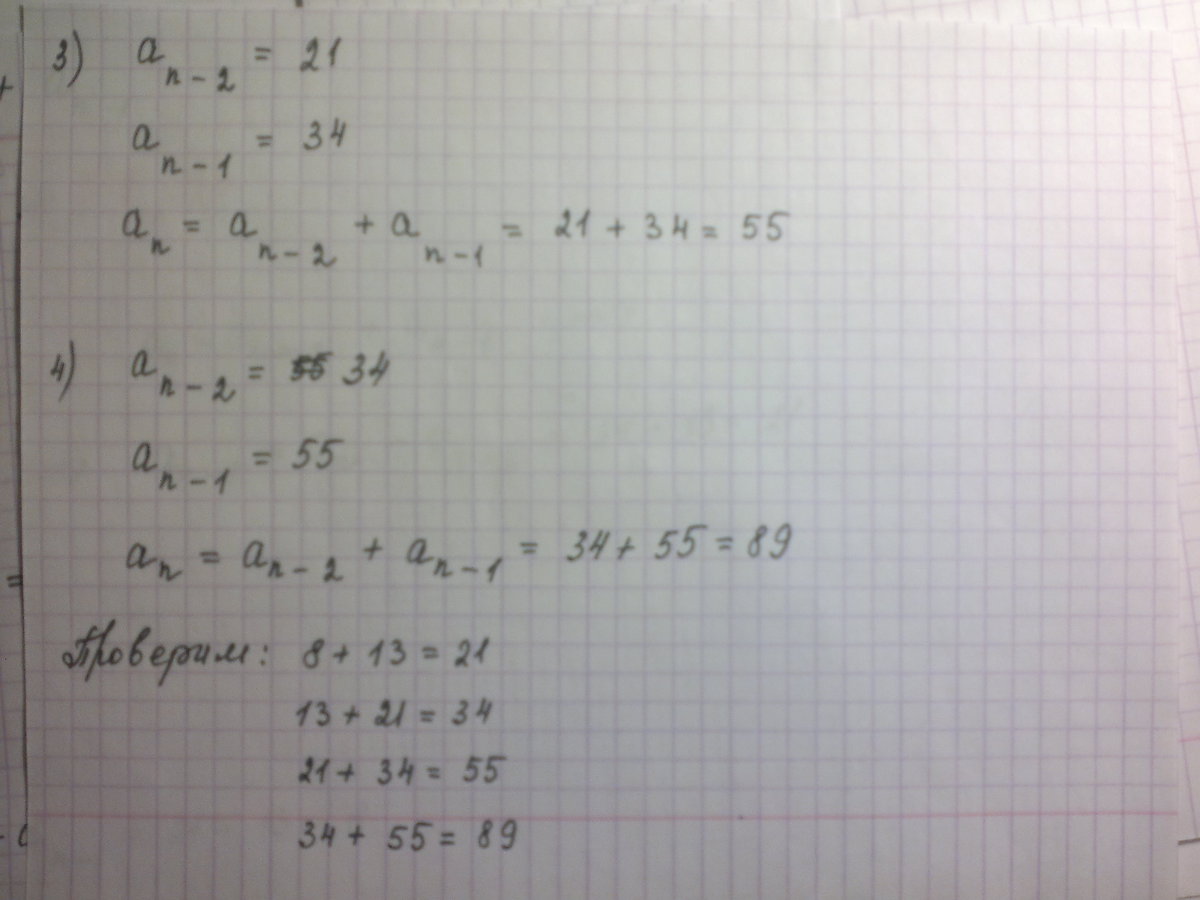 3) a_{n-2} = 21
a_{n-1} = 34
a_n = a_{n-2} + a_{n-1} = 21 + 34 = 55
4) a_{n-2} = ~~55~~ 34
a_{n-1} = 55
a_n = a_{n-2} + a_{n-1} = 34 + 55 = 89
Проверим: 8 + 13 = 21
13 + 21 = 34
21 + 34 = 55
34 + 55 = 89